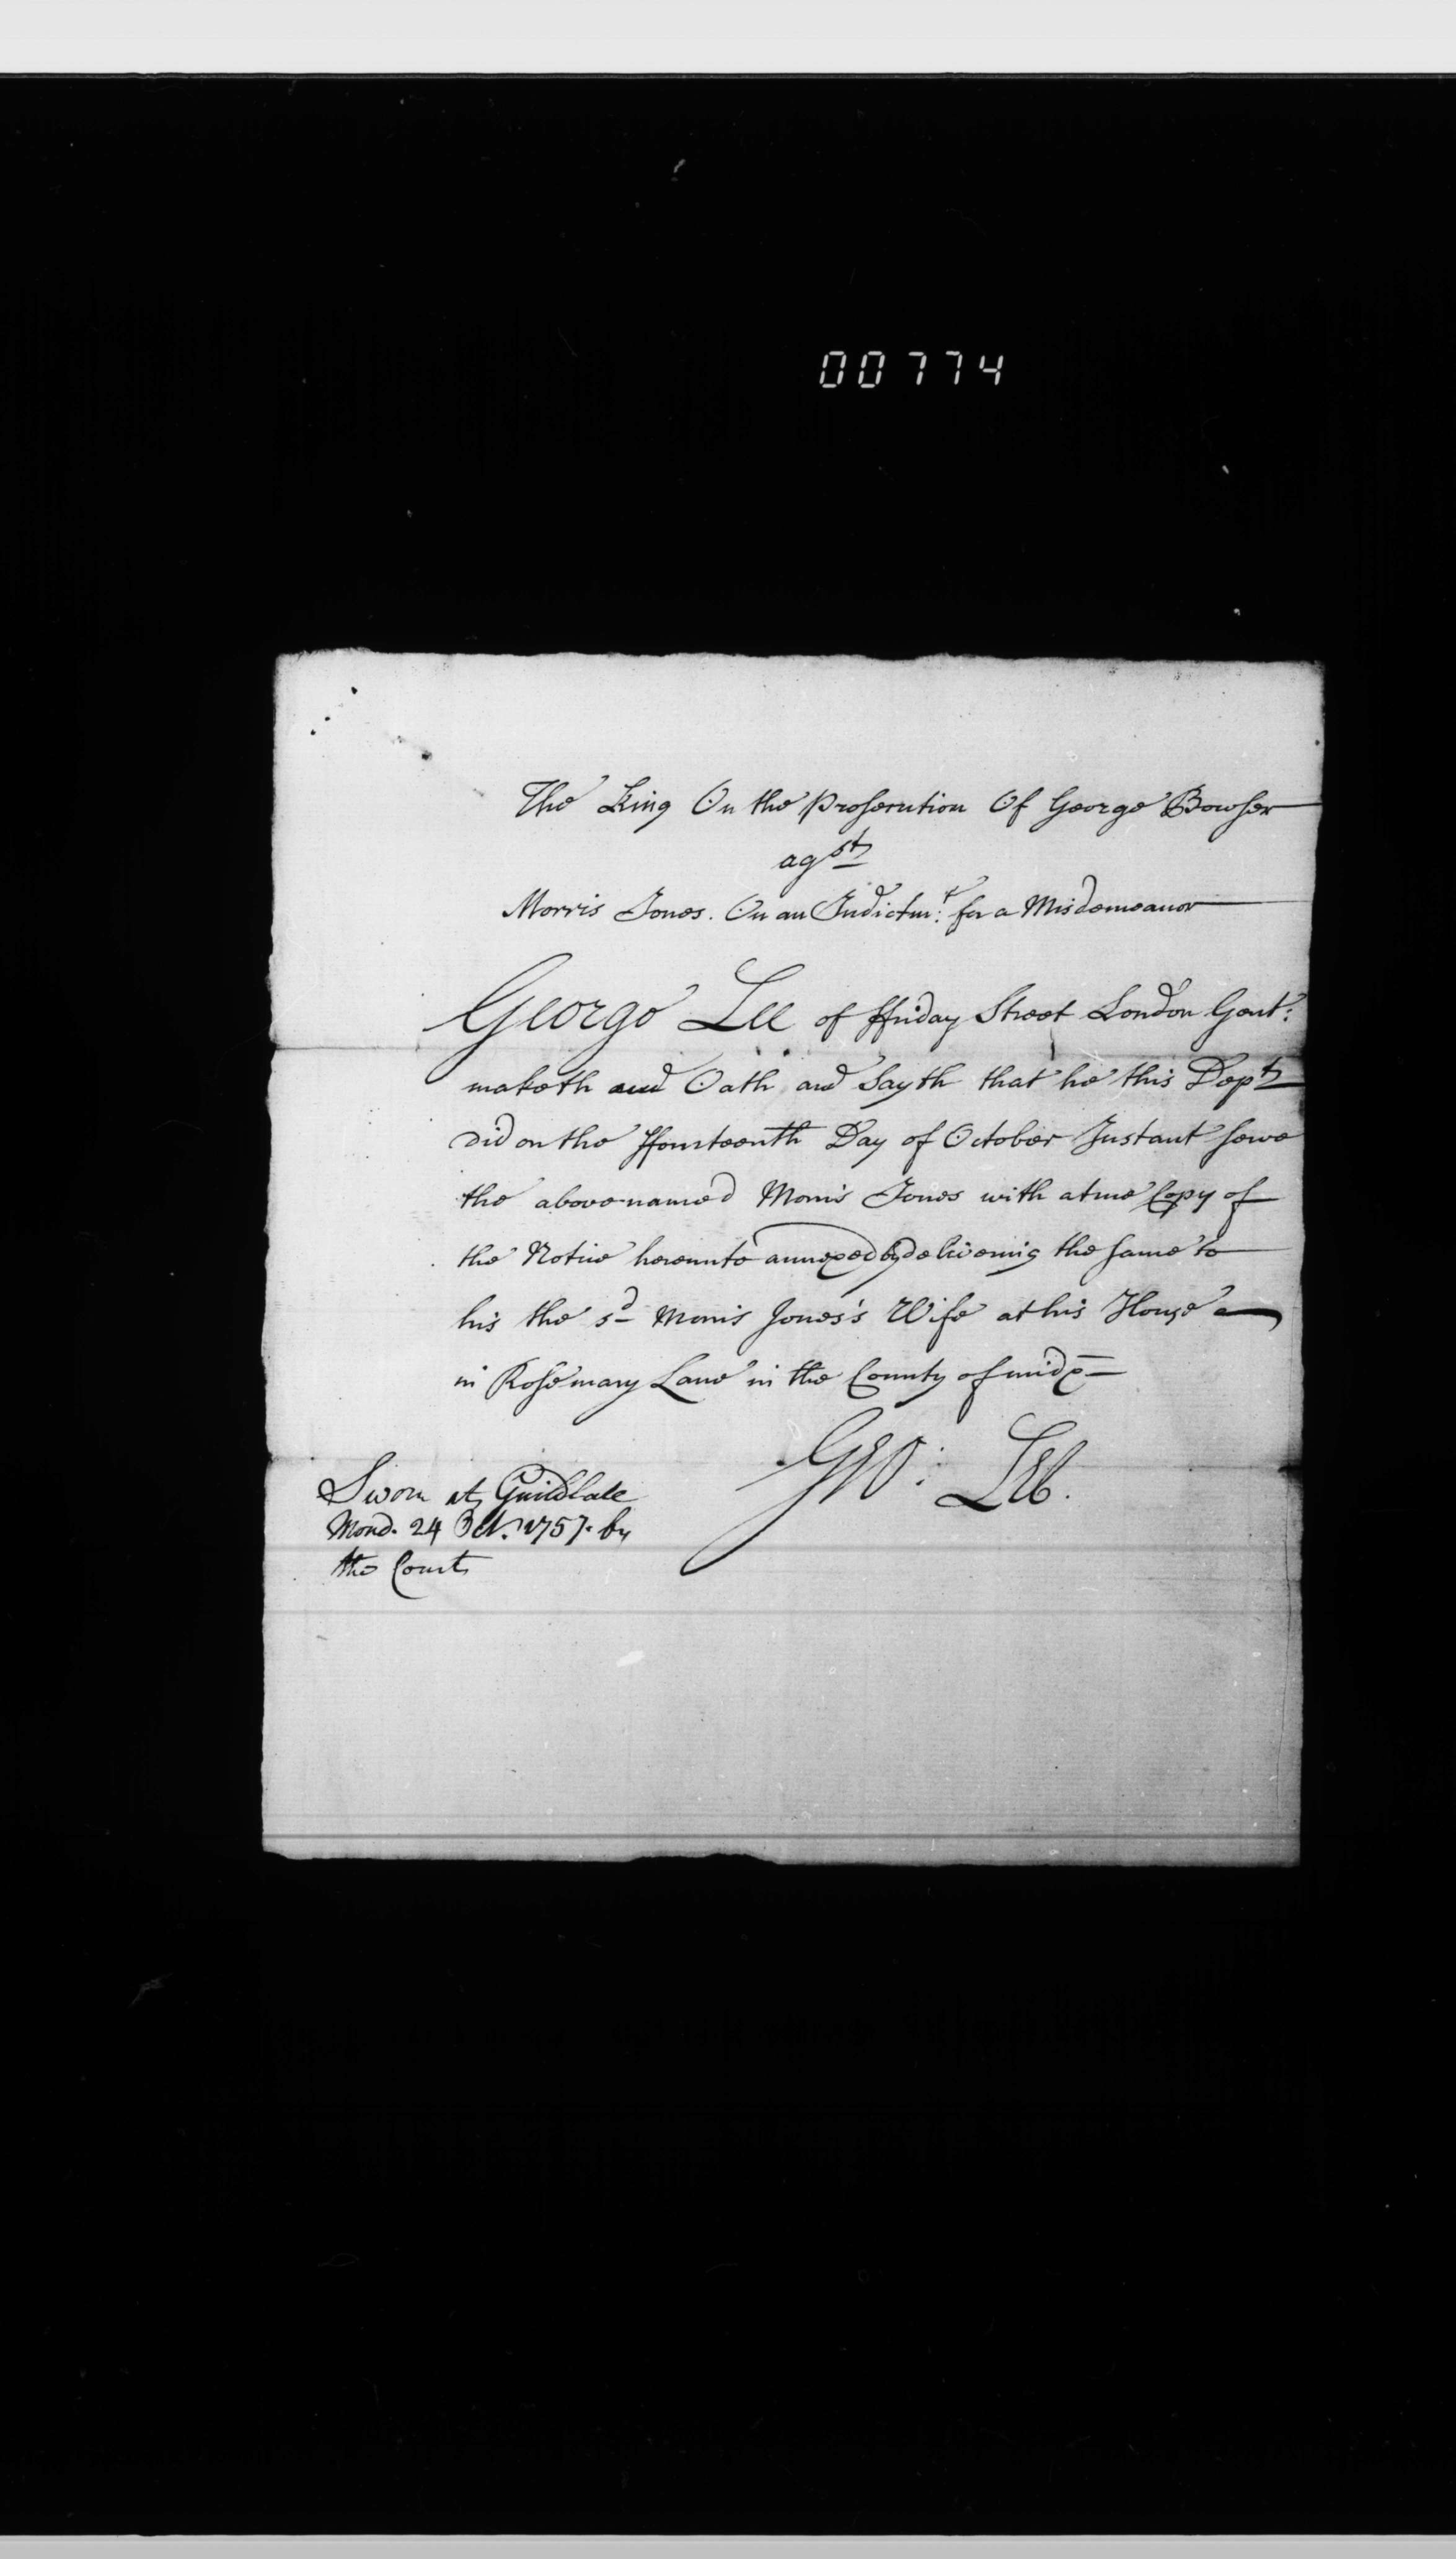 00774
The King On the Prosecution Of George Bowser
agst
Morris Jones. On an Indictmt: for a Misdemeanor
George Lee of ffriday Street London Gent:
maketh and Oath and Sayth that he this Dept
did on the ffourteenth Day of October Instant serve
the above named Morris Jones with a true Copy of
the Notice hereunto annexed by delivering the same to
his the sd Morris Jones's Wife at his House
in Rosemary Lane in the County of Middx
Geo: Lee.
Sworn at Guildhall
Mond. 24 Oct. 1757. by
the Court